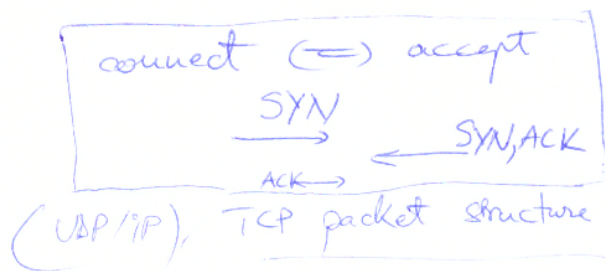 connect (=) accept
SYN
→ ← SYN,ACK
ACK →
(UDP/IP), TCP packet structure